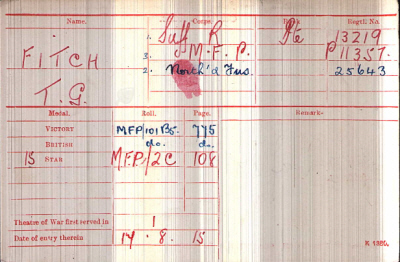 Name. Corps. Rank. Regtl. No.
FITCH 1. Suff R Pte 13219
T.G. 3. M.F.P. P11357.
2. North'd Fus. 25643
Medal. Roll. Page. Remarks.
VICTORY MFP/101B5. 775
BRITISH do. do.
15 STAR M.F.P/2C 108
Theatre of War first served in 1
Date of entry therein 14.8.15
K 1380.